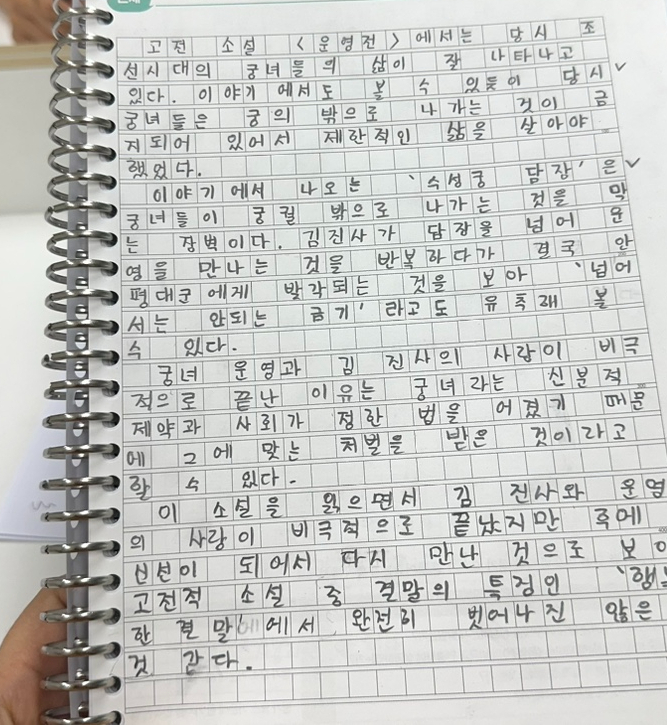 고전 소설 〈운영전〉에서는 당시 조
선시대의 궁녀들의 삶이 잘 나타나고
있다. 이야기에서도 볼 수 있듯이 당시
궁녀들은 궁의 밖으로 나가는 것이 금
지되어 있어서 제한적인 삶을 살아야
했었다.
이야기에서 나오는 '수성궁 담장'은
궁녀들이 궁궐 밖으로 나가는 것을 막
는 장벽이다. 김진사가 담장을 넘어 운
영을 만나는 것을 반복하다가 결국 안
평대군에게 발각되는 것을 보아 '넘어
서는 안되는 금기'라고도 유추해 볼
수 있다.
궁녀 운영과 김 진사의 사랑이 비극
적으로 끝나 이유는 궁녀라는 신분적
제약과 사회가 정한 법을 어겼기 때문
에 그에 맞는 처벌을 받은 것이라고
할 수 있다.
이 소설을 읽으면서 김 진사와 운영
의 사랑이 비극적으로 끝났지만 후에
신선이 되어서 다시 만난 것으로 보아
고전적 소설 중 결말의 특징인
한 결말에서 완전히 벗어나진 않은
것 같다.